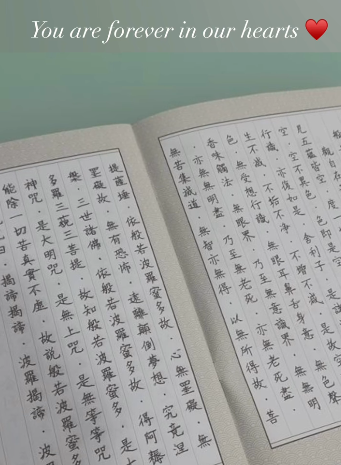 You are forever in our hearts ❤️
見五蘊皆
空・空不異色・色即是
行識・亦復如是・舍利子・是
生不滅・不垢不淨・不增不減・是故
色・無受想行識・無眼耳鼻舌身意・無色聲
香味觸法・無眼界・乃至無意識界・無無明
亦無無明盡・乃至無老死・亦無老死盡
無苦集滅道・無智亦無得・以無所得故・菩
提薩埵・依般若波羅蜜多故・心無罣礙・無
罣礙故・無有恐怖・遠離顛倒夢想・究竟涅
槃・三世諸佛・依般若波羅蜜多故・得阿耨
多羅三藐三菩提・故知般若波羅蜜多・是大
神咒・是大明咒・是無上咒・是無等等咒
能除一切苦真實不虛・故說般若波羅蜜多
揭諦揭諦・波羅揭諦・波